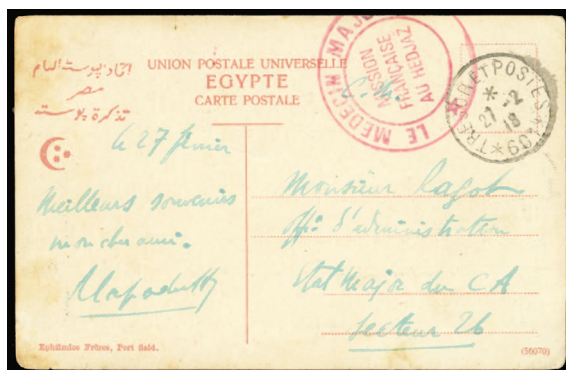 UNION POSTALE UNIVERSELLE
EGYPTE
CARTE POSTALE
مصر
LE MEDECIN MAJOR
MISSION
FRANÇAISE
AU HEDJAZ
S.M.
TRESOR ET POSTES
27 -2
18
le 27 février
Meilleurs souvenirs
mon cher ami.
Monsieur Lagob
Off. d'administration
Etat Major du CA
Secteur 26
Ephtimios Frères, Port Said.
(56070)